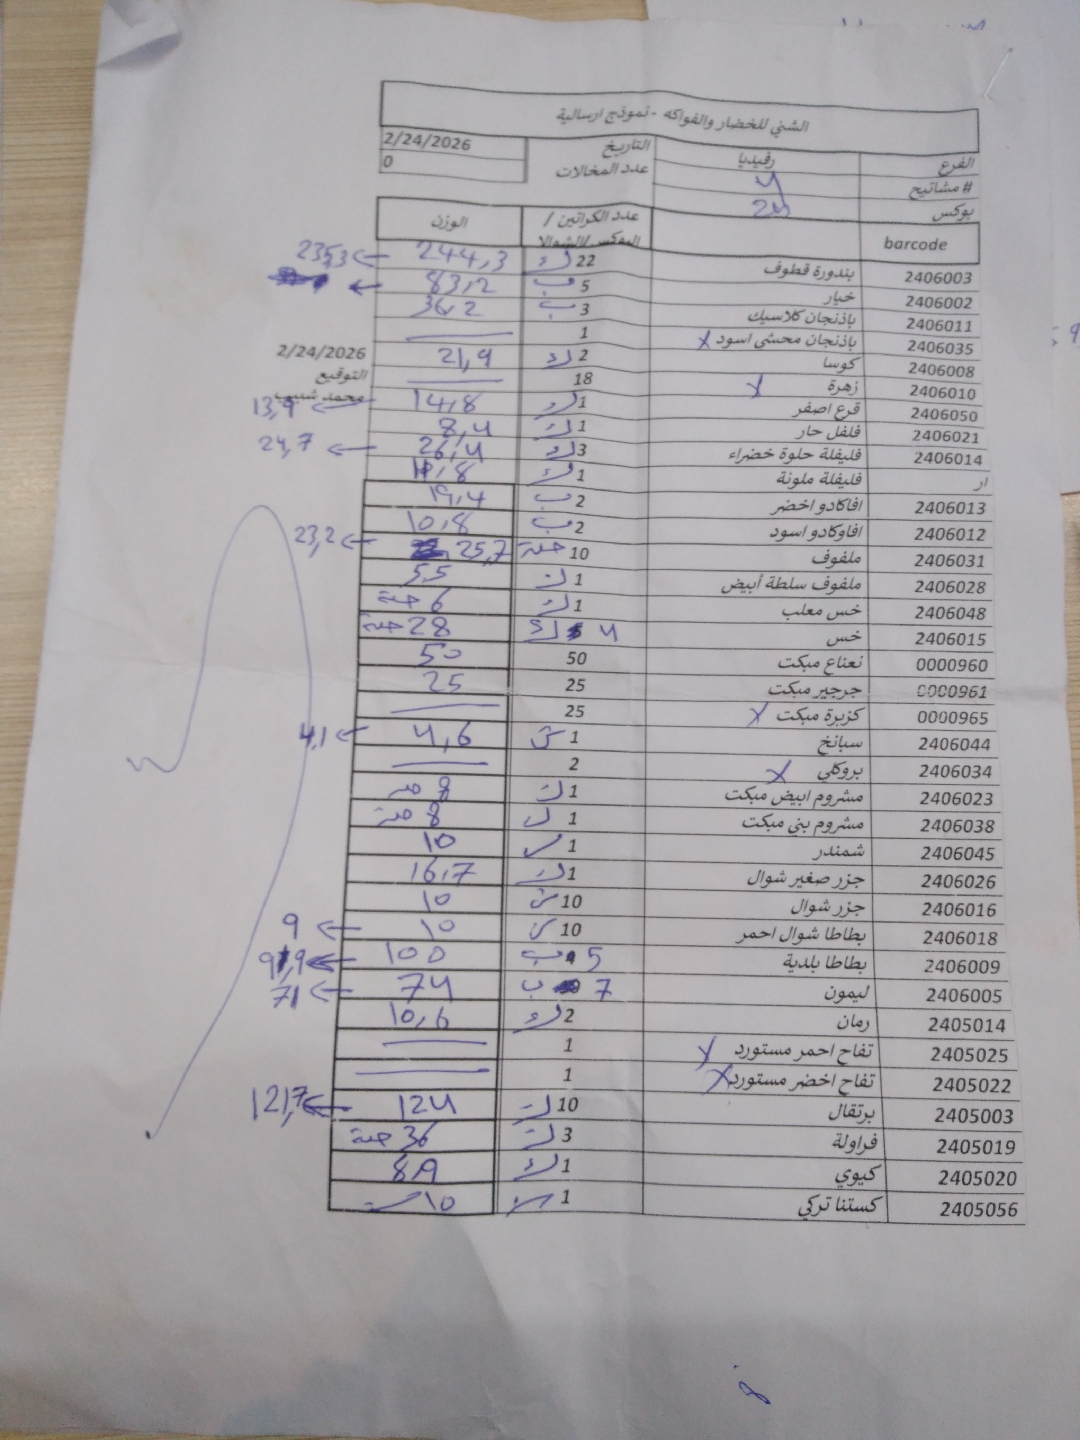 الشني للخضار والفواكه - نموذج ارسالية
الفرع رفيديا التاريخ 2/24/2026
# مشاتيح 4 عدد المخالات 0
بوكس
barcode عدد الكراتين / البوكس/الشوالا الوزن
2406003 بندورة قطوف 22 ك 244,3 ← 235,3
2406002 خيار 5 ب 83,2 ←
2406011 باذنجان كلاسيك 3 ب 36,2
2406035 باذنجان محشي اسود x 1
2406008 كوسا 2 ك 21,9 2/24/2026
2406010 زهرة x 18 التوقيع
2406050 قرع اصفر 1 ك 14,8 ← 13,9 محمد شبيب
2406021 فلفل حار 1 ك 8,4
2406014 فليفلة حلوة خضراء 3 ك 26,4 ← 24,7
ار فليفلة ملونة 1 ك
2406013 افاكادو اخضر 2 ب 19,4
2406012 افاوكادو اسود 2 ب 10,8
2406031 ملفوف 10 حبة 25,7 ← 23,2
2406028 ملفوف سلطة أبيض 1 ك 5,5
2406048 خس معلب 1 ك 6 حبة
2406015 خس 4 ك 28 حبة
0000960 نعناع مبكت 50 50
0000961 جرجير مبكت 25 25
0000965 كزبرة مبكت x 25
2406044 سبانخ 1 ش 4,6 ← 4,1
2406034 بروكلي x 2
2406023 مشروم ابيض مبكت 1 ك 8
2406038 مشروم بني مبكت 1 ك 8
2406045 شمندر 1 10
2406026 جزر صغير شوال 1 ك 16,7
2406016 جزر شوال 10 ش 10
2406018 بطاطا شوال احمر 10 ش 10 ← 9
2406009 بطاطا بلدية 5 ب 100 ←
2406005 ليمون 7 ب 74 ← 71
2405014 رمان 2 ك 10,6
2405025 تفاح احمر مستورد x 1
2405022 تفاح اخضر مستورد x 1
2405003 برتقال 10 ك 124 ← 121,7
2405019 فراولة 3 ك 36 حبة
2405020 كيوي 1 ك 8,9
2405056 كستنا تركي 1 10